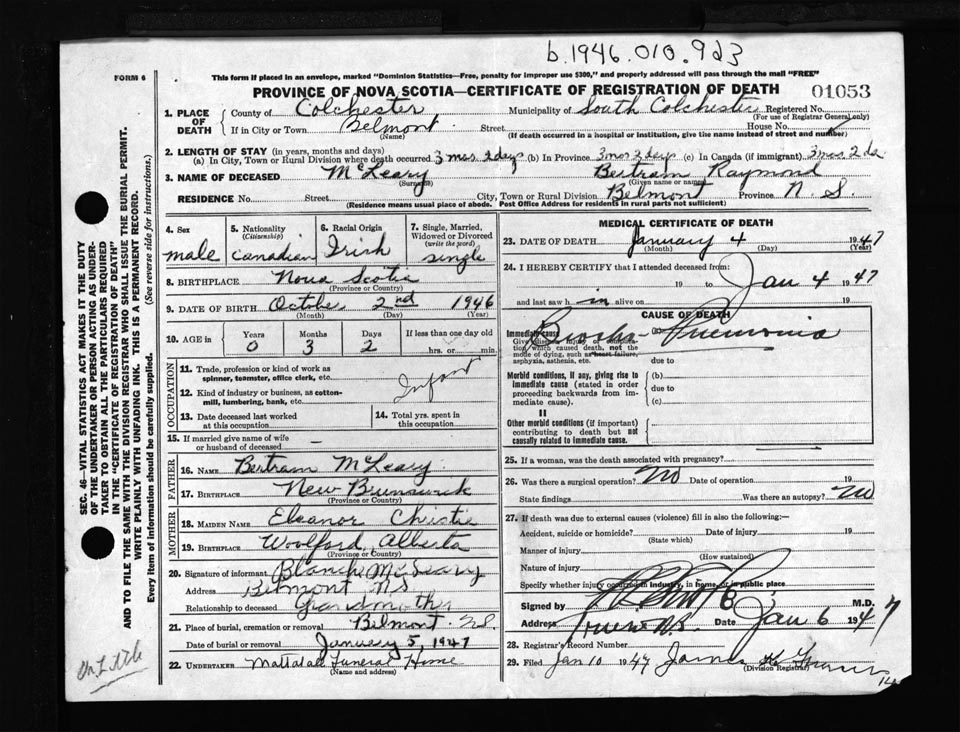 b.1946.010.923
FORM 6
This form if placed in an envelope, marked "Dominion Statistics—Free, penalty for improper use $300," and properly addressed will pass through the mail "FREE"
PROVINCE OF NOVA SCOTIA—CERTIFICATE OF REGISTRATION OF DEATH 01053
1. PLACE OF DEATH County of Colchester Municipality of South Colchester Registered No.
(For use of Registrar General only)
If in City or Town Belmont Street House No.
(Name) (If death occurred in a hospital or institution, give the name instead of street and number)
2. LENGTH OF STAY (in years, months and days)
(a) In City, Town or Rural Division where death occurred 3 mos 2 days (b) In Province 3 mos 2 days (c) In Canada (if immigrant) 3 mos 2 da
3. NAME OF DECEASED McLeary Bertram Raymond
(Surname) (Given name or names)
RESIDENCE No. Street City, Town or Rural Division Belmont Province N S.
(Residence means usual place of abode. Post Office Address for residents in rural parts not sufficient)
4. Sex
male
5. Nationality
(Citizenship)
Canadian
6. Racial Origin
Irish
7. Single, Married, Widowed or Divorced
(write the word)
single
8. BIRTHPLACE Nova Scotia
(Province or Country)
9. DATE OF BIRTH October 2nd 1946
(Month) (Day) (Year)
10. AGE in Years Months Days If less than one day old
0 3 2 hrs. or min.
OCCUPATION
11. Trade, profession or kind of work as
spinner, teamster, office clerk, etc. Infant
12. Kind of industry or business, as cotton-
mill, lumbering, bank, etc.
13. Date deceased last worked
at this occupation
14. Total yrs. spent in
this occupation
15. If married give name of wife
or husband of deceased —
FATHER
16. NAME Bertram McLeary
17. BIRTHPLACE New Brunswick
(Province or Country)
MOTHER
18. MAIDEN NAME Eleanor Christie
19. BIRTHPLACE Woolford, Alberta
(Province or Country)
20. Signature of informant Blanche McLeary
Address Belmont N.S.
Relationship to deceased Grandmother
21. Place of burial, cremation or removal Belmont N.S.
Date of burial or removal January 5 1947
22. UNDERTAKER Mattatall Funeral Home
(Name and address)
MEDICAL CERTIFICATE OF DEATH
23. DATE OF DEATH January 4 1947
(Month) (Day) (Year)
24. I HEREBY CERTIFY that I attended deceased from:
19 to Jan 4 1947
and last saw h im alive on 19
CAUSE OF DEATH
Immediate cause (a) Broncho-Pneumonia
Give disease, injury or complica-
tion which caused death, not the
mode of dying, such as heart failure,
asphyxia, asthenia, etc. due to
Morbid conditions, if any, giving rise to
immediate cause (stated in order
proceeding backwards from im-
mediate cause).
(b)
due to
(c)
II
Other morbid conditions (if important)
contributing to death but not
causally related to immediate cause.
25. If a woman, was the death associated with pregnancy?
26. Was there a surgical operation? No Date of operation 19
State findings Was there an autopsy? No
27. If death was due to external causes (violence) fill in also the following:—
Accident, suicide or homicide? Date of injury 19
(State which)
Manner of injury
(How sustained)
Nature of injury
Specify whether injury occurred in industry, in home, or in public place
Signed by M.D.
Address Truro N.S. Date Jan 6 1947
28. Registrar's Record Number
29. Filed Jan 10 1947 James
(Division Registrar)
14
SEC. 46—VITAL STATISTICS ACT MAKES IT THE DUTY
OF THE UNDERTAKER OR PERSON ACTING AS UNDER-
TAKER TO OBTAIN ALL THE PARTICULARS REQUIRED
IN THE "CERTIFICATE OF REGISTRATION OF DEATH"
AND TO FILE THE SAME WITH THE DIVISION REGISTRAR WHO SHALL ISSUE THE BURIAL PERMIT.
WRITE PLAINLY WITH UNFADING INK. THIS IS A PERMANENT RECORD.
Every item of information should be carefully supplied. (See reverse side for instructions.)